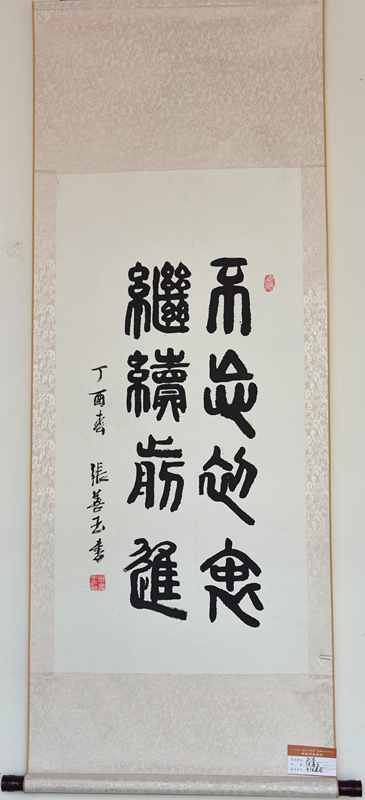 不忘初衷
繼續前進
丁酉春 張善玉書